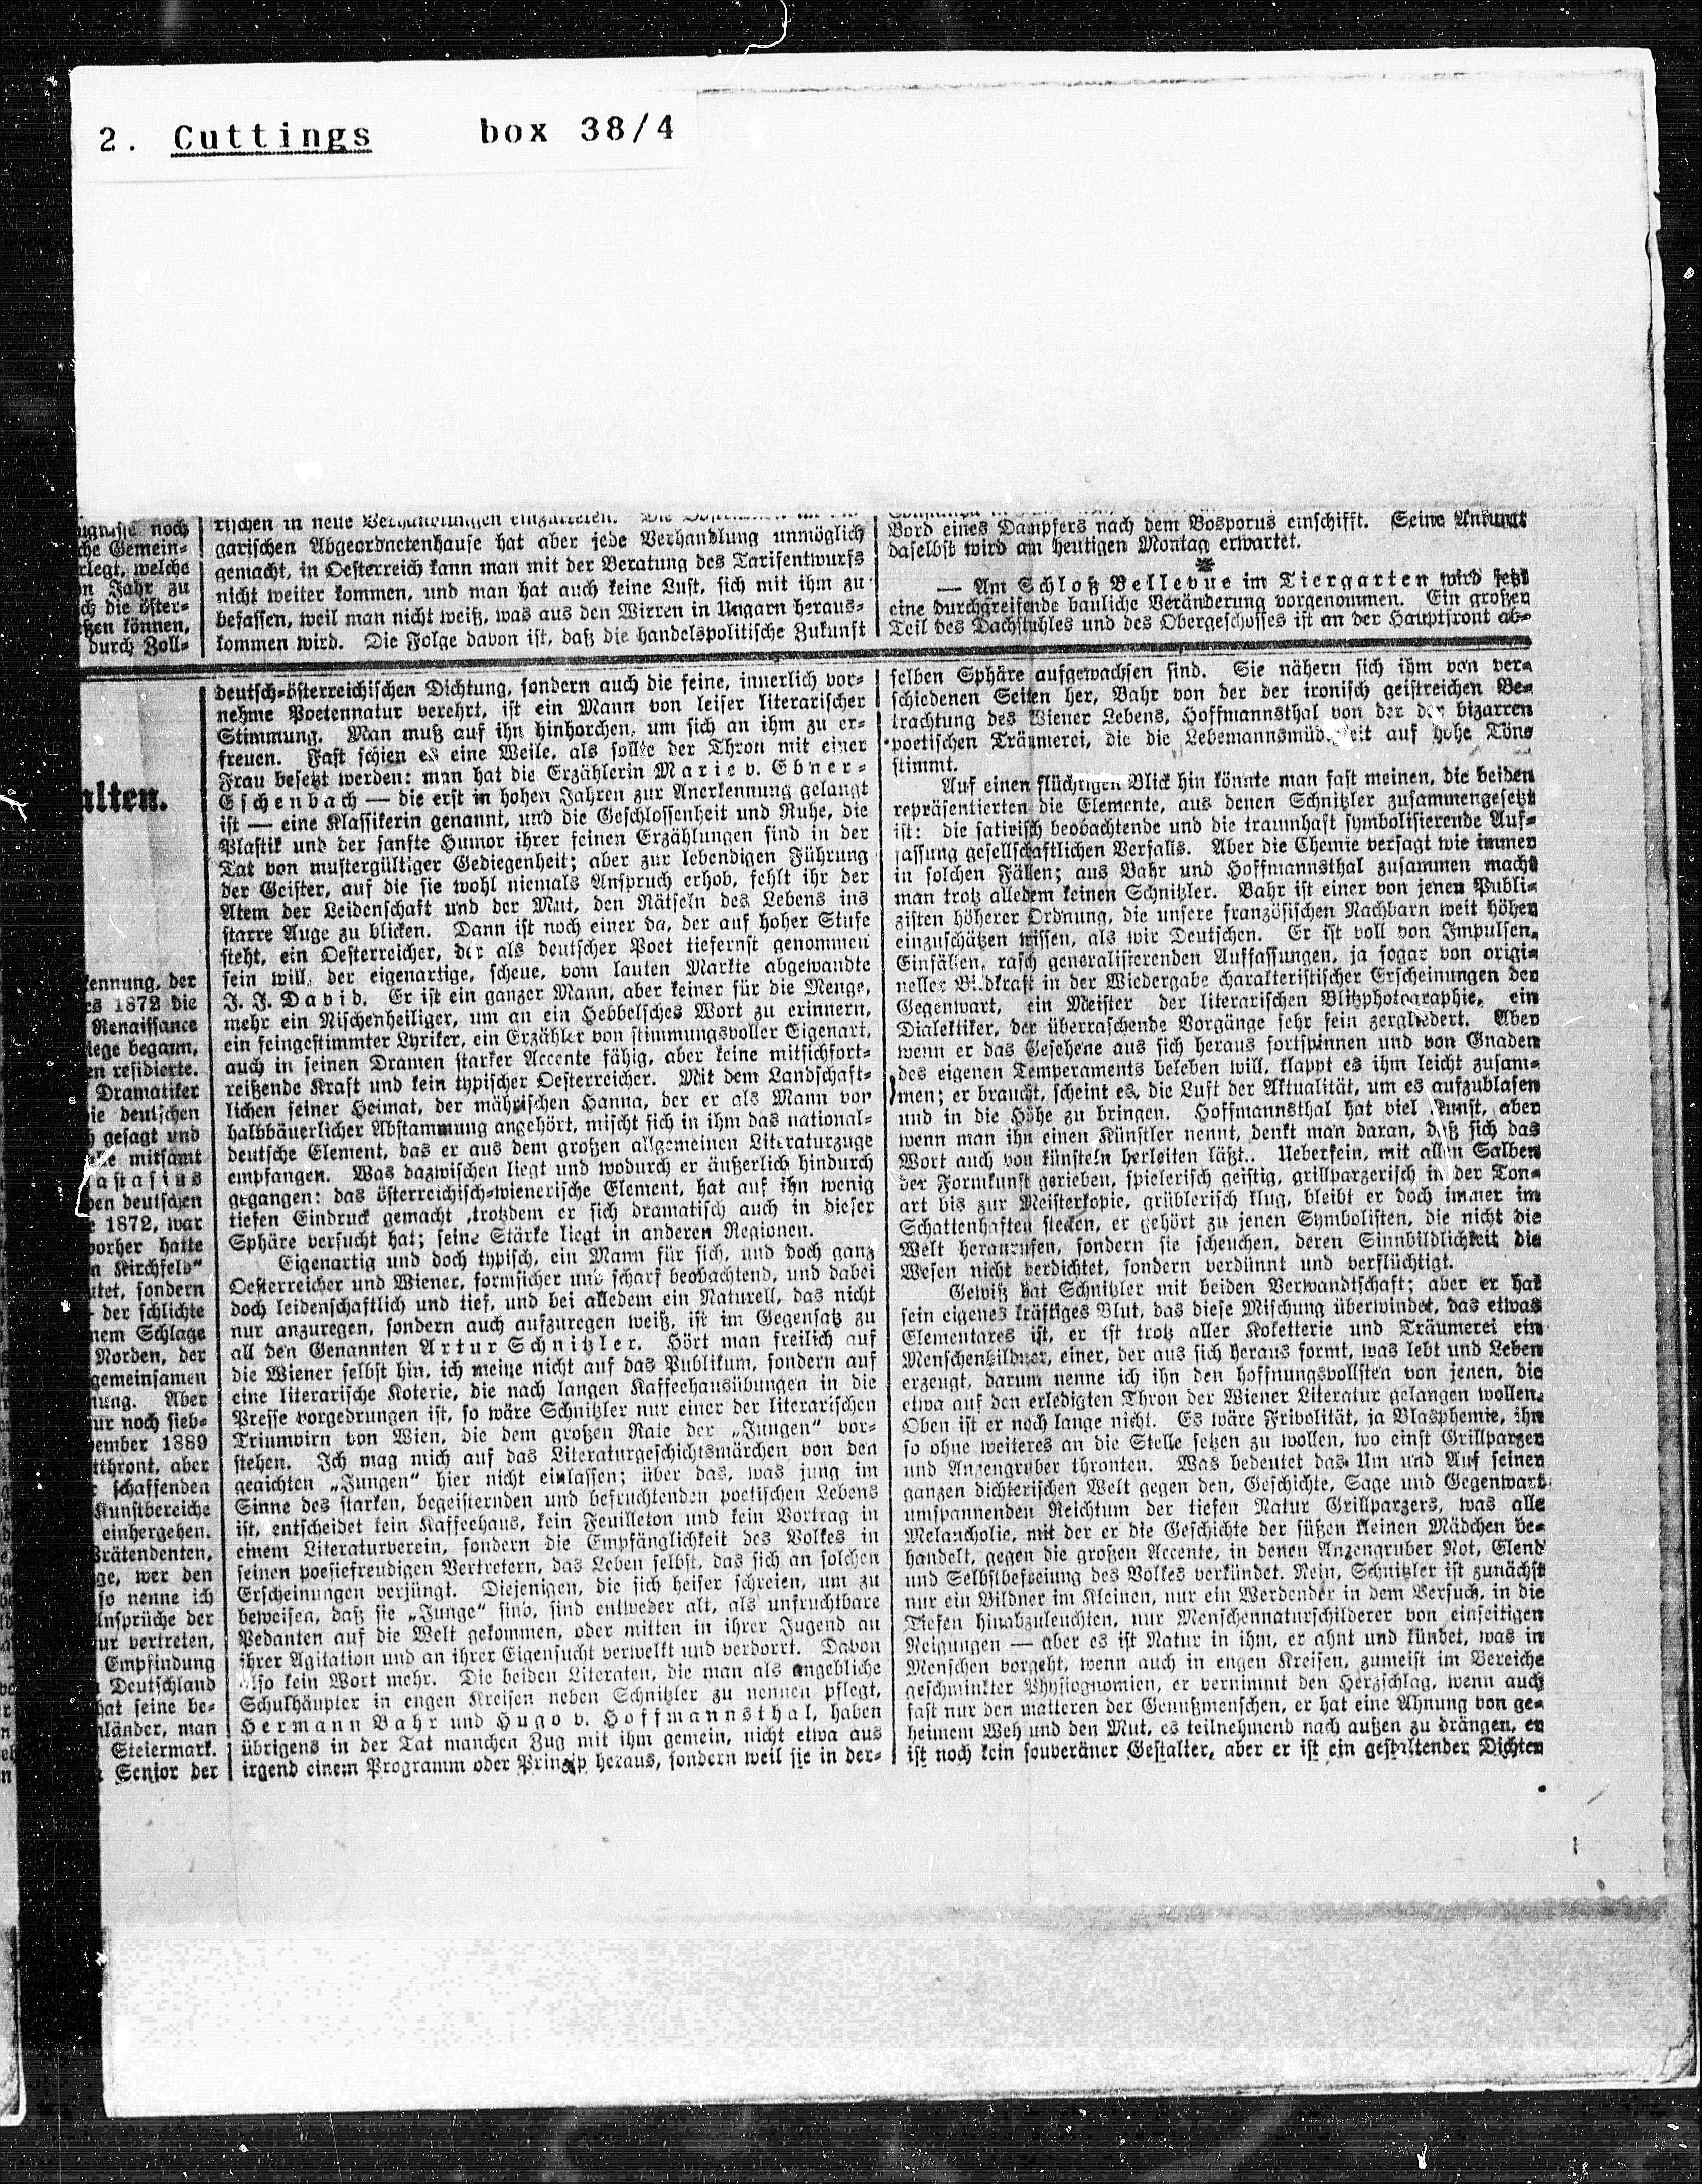 2. Cuttings box 38/4
noch
che Gemein-
rlegt, welche
n Jahr zu
ch die öster-
eßen können,
durch Zoll-
alten.
kennung, der
es 1872 die
Renaissance
iege begann,
en residierte.
Dramatiker
ie deutschen
h gesagt und
mitsamt
astasius
ben deutschen
e 1872, war
vorher hatte
n Kirchfeld"
utet, sondern
- der schlichte
nem Schlage
Norden, der
gemeinsamen
nung. Aber
ur noch sieb-
ember 1889
tthront, aber
r schaffenden
Kunstbereiche
einhergehen.
Prätendenten,
ge, wer den
so nenne ich
Ansprüche der
ur vertreten,
Empfindung
Deutschland
hat seine be-
nländer, man
Steiermark.
Senior der
rischen in neue Verhandlungen einzutreten.
garischen Abgeordnetenhause hat aber jede Verhandlung unmöglich
gemacht, in Oesterreich kann man mit der Beratung des Tarifentwurfs
nicht weiter kommen, und man hat auch keine Lust, sich mit ihm zu
befassen, weil man nicht weiß, was aus den Wirren in Ungarn heraus-
kommen wird. Die Folge davon ist, daß die handelspolitische Zukunft
Bord eines Dampfers nach dem Bosporus einschifft. Seine Ankunft
daselbst wird am heutigen Montag erwartet.
— Am Schloß Bellevue im Tiergarten wird jetzt
eine durchgreifende bauliche Veränderung vorgenommen. Ein großen
Teil des Dachstuhles und des Obergeschosses ist an der Hauptfront ab-
deutsch-österreichischen Dichtung, sondern auch die feine, innerlich vor-
nehme Poetennatur verehrt, ist ein Mann von leiser literarischer
Stimmung. Man muß auf ihn hinhorchen, um sich an ihm zu er-
freuen. Fast schien es eine Weile, als sollte der Thron mit einer
Frau besetzt werden: man hat die Erzählerin Marie v. Ebner-
Eschenbach — die erst in hohen Jahren zur Anerkennung gelangt
ist — eine Klassikerin genannt, und die Geschlossenheit und Ruhe, die
Plastik und der sanfte Humor ihrer feinen Erzählungen sind in der
Tat von mustergültiger Gediegenheit; aber zur lebendigen Führung
der Geister, auf die sie wohl niemals Anspruch erhob, fehlt ihr der
Atem der Leidenschaft und der Mut, den Rätseln des Lebens ins
starre Auge zu blicken. Dann ist noch einer da, der auf hoher Stufe
steht, ein Oesterreicher, der als deutscher Poet tiefernst genommen
sein will, der eigenartige, scheue, vom lauten Markte abgewandte
J. J. David. Er ist ein ganzer Mann, aber keiner für die Menge,
mehr ein Nischenheiliger, um an ein Hebbelsches Wort zu erinnern,
ein feingestimmter Lyriker, ein Erzähler von stimmungsvoller Eigenart,
auch in seinen Dramen starker Accente fähig, aber keine mitsichfort-
reißende Kraft und kein typischer Oesterreicher. Mit dem Landschaft-
lichen seiner Heimat, der mährischen Hanna, der er als Mann von
halbbäuerlicher Abstammung angehört, mischt sich in ihm das national-
deutsche Element, das er aus dem großen allgemeinen Literaturzuge
empfangen. Was dazwischen liegt und wodurch er äußerlich hindurch
gegangen: das österreichisch-wienerische Element, hat auf ihn wenig
tiefen Eindruck gemacht ,trotzdem er sich dramatisch auch in dieser
Sphäre versucht hat; seine Stärke liegt in anderen Regionen.
Eigenartig und doch typisch, ein Mann für sich, und doch ganz
Oesterreicher und Wiener, formsicher und scharf beobachtend, und dabei
doch leidenschaftlich und tief, und bei alledem ein Naturell, das nicht
nur anzuregen, sondern auch aufzuregen weiß, ist im Gegensatz zu
all den Genannten Artur Schnitzler. Hört man freilich auf
die Wiener selbst hin, ich meine nicht auf das Publikum, sondern auf
eine literarische Koterie, die nach langen Kaffeehausübungen in die
Presse vorgedrungen ist, so wäre Schnitzler nur einer der literarischen
Triumvirn von Wien, die dem großen Rate der „Jungen" vor-
stehen. Ich mag mich auf das Literaturgeschichtsmärchen von den
geaichten „Jungen" hier nicht einlassen; über das, was jung im
Sinne des starken, begeisternden und befruchtenden poetischen Lebens
ist, entscheidet kein Kaffeehaus, kein Feuilleton und kein Vortrag in
einem Literaturverein, sondern die Empfänglichkeit des Volkes in
seinen poesiefreudigen Vertretern, das Leben selbst, das sich an solchen
Erscheinungen verjüngt. Diejenigen, die sich heiser schreien, um zu
beweisen, daß sie „Junge" sind, sind entweder alt, als unfruchtbare
Pedanten auf die Welt gekommen, oder mitten in ihrer Jugend an
ihrer Agitation und an ihrer Eigensucht verwelkt und verdorrt. Davon
also kein Wort mehr. Die beiden Literaten, die man als angebliche
Schulhäupter in engen Kreisen neben Schnitzler zu nennen pflegt,
Hermann Bahr und Hugo v. Hoffmannsthal, haben
übrigens in der Tat manchen Zug mit ihm gemein, nicht etwa aus
irgend einem Programm oder Prinzip heraus, sondern weil sie in der-
selben Sphäre aufgewachsen sind. Sie nähern sich ihm von ver-
schiedenen Seiten her, Bahr von der der ironisch geistreichen Be-
trachtung des Wiener Lebens, Hoffmannsthal von der der bizarren
poetischen Träumerei, die die Lebemannsmüdigkeit auf hohe Töne
stimmt.
Auf einen flüchtigen Blick hin könnte man fast meinen, die beiden
repräsentierten die Elemente, aus denen Schnitzler zusammengesetzt
ist: die satirisch beobachtende und die traumhaft symbolisierende Auf-
fassung gesellschaftlichen Verfalls. Aber die Chemie versagt wie immer
in solchen Fällen; aus Bahr und Hoffmannsthal zusammen macht
man trotz alledem keinen Schnitzler. Bahr ist einer von jenen Publi-
zisten höherer Ordnung, die unsere französischen Nachbarn weit höher
einzuschätzen wissen, als wir Deutschen. Er ist voll von Impulsen,
Einfällen, rasch generalisierenden Auffassungen, ja sogar von origi-
neller Bildkraft in der Wiedergabe charakteristischer Erscheinungen der
Gegenwart, ein Meister der literarischen Blitzphotographie, ein
Dialektiker, der überraschende Vorgänge sehr fein zergliedert. Aber
wenn er das Gesehene aus sich heraus fortspinnen und von Gnaden
des eigenen Temperaments beleben will, klappt es ihm leicht zusam-
men; er braucht, scheint es, die Luft der Aktualität, um es aufzublasen
und in die Höhe zu bringen. Hoffmannsthal hat viel Kunst, aber
wenn man ihn einen Künstler nennt, denkt man daran, daß sich das
Wort auch von künsteln herleiten läßt.. Ueberfein, mit allen Salben
der Formkunst gerieben, spielerisch geistig, grillparzerisch in der Ton-
art bis zur Meisterkopie, grüblerisch klug, bleibt er doch immer im
Schattenhaften stecken, er gehört zu jenen Symbolisten, die nicht die
Welt heranrufen, sondern sie scheuchen, deren Sinnbildlichkeit die
Wesen nicht verdichtet, sondern verdünnt und verflüchtigt.
Gewiß hat Schnitzler mit beiden Verwandtschaft; aber er hat
sein eigenes kräftiges Blut, das diese Mischung überwindet, das etwas
Elementares ist, er ist trotz aller Koketterie und Träumerei ein
Menschenbildner, einer, der aus sich heraus formt, was lebt und Leben
erzeugt, darum nenne ich ihn den hoffnungsvollsten von jenen, die
etwa auf den erledigten Thron der Wiener Literatur gelangen wollen.
Oben ist er noch lange nicht. Es wäre Frivolität, ja Blasphemie, ihn
so ohne weiteres an die Stelle setzen zu wollen, wo einst Grillparzer
und Anzengruber thronten. Was bedeutet das Um und Auf seiner
ganzen dichterischen Welt gegen den, Geschichte, Sage und Gegenwart
umspannenden Reichtum der tiefen Natur Grillparzers, was alle
Melancholie, mit der er die Geschichte der süßen kleinen Mädchen be-
handelt, gegen die großen Accente, in denen Anzengruber Not, Elend
und Selbstbefreiung des Volkes verkündet. Nein, Schnitzler ist zunächst
nur ein Bildner im Kleinen, nur ein Werdender in dem Versuch, in die
Tiefen hinabzuleuchten, nur Menschennaturschilderer von einseitigen
Neigungen — aber es ist Natur in ihm, er ahnt und kündet, was in
Menschen vorgeht, wenn auch in engen Kreisen, zumeist im Bereiche
geschminkter Physiognomien, er vernimmt den Herzschlag, wenn auch
fast nur den matteren der Genußmenschen, er hat eine Ahnung von ge-
heimem Weh und den Mut, es teilnehmend nach außen zu drängen, er
ist noch kein souveräner Gestalter, aber er ist ein gestaltender Dichter